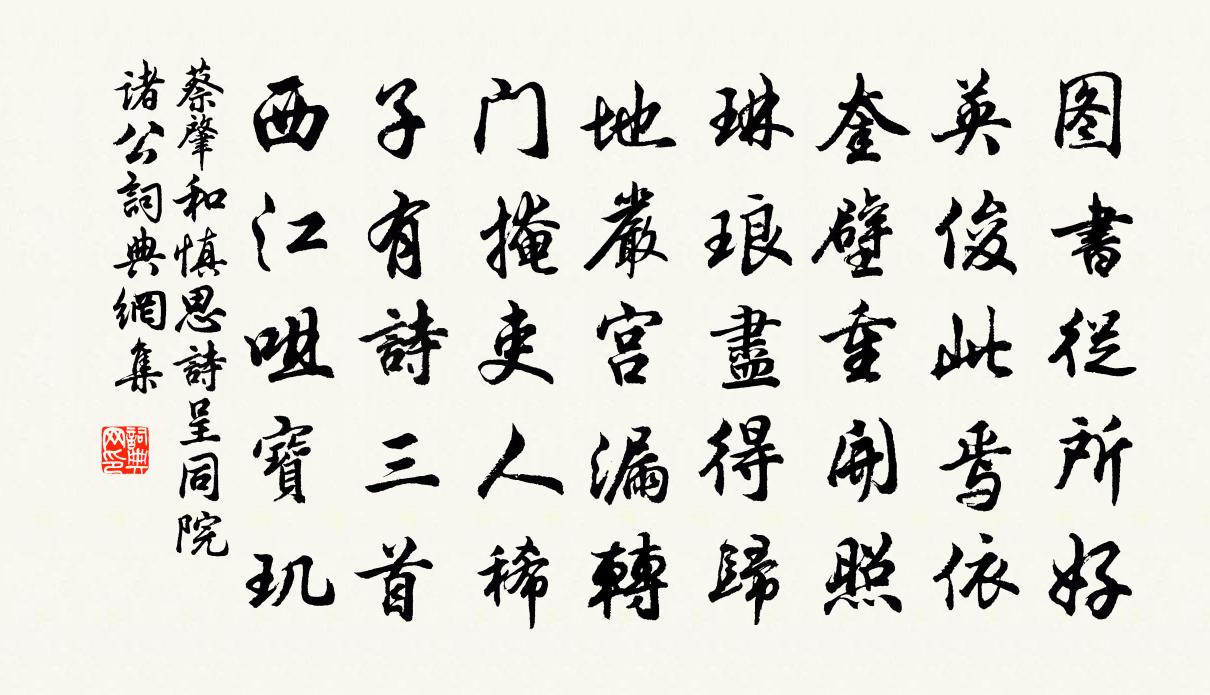 图書從所好
英俊此焉依
奎壁重開照
琳琅盡得歸
地嚴宫漏轉
门掩吏人稀
子有詩三首
西江咀寶玑
蔡肇和慎思詩呈同院
诸公詞典網集
詞典
网印